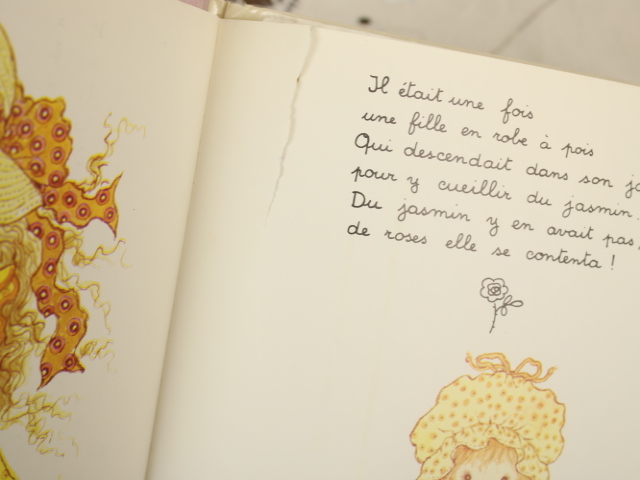 Il était une fois
une fille en robe à pois
Qui descendait dans son
pour y cueillir du jasmin.
Du jasmin y en avait pas,
de roses elle se contenta !